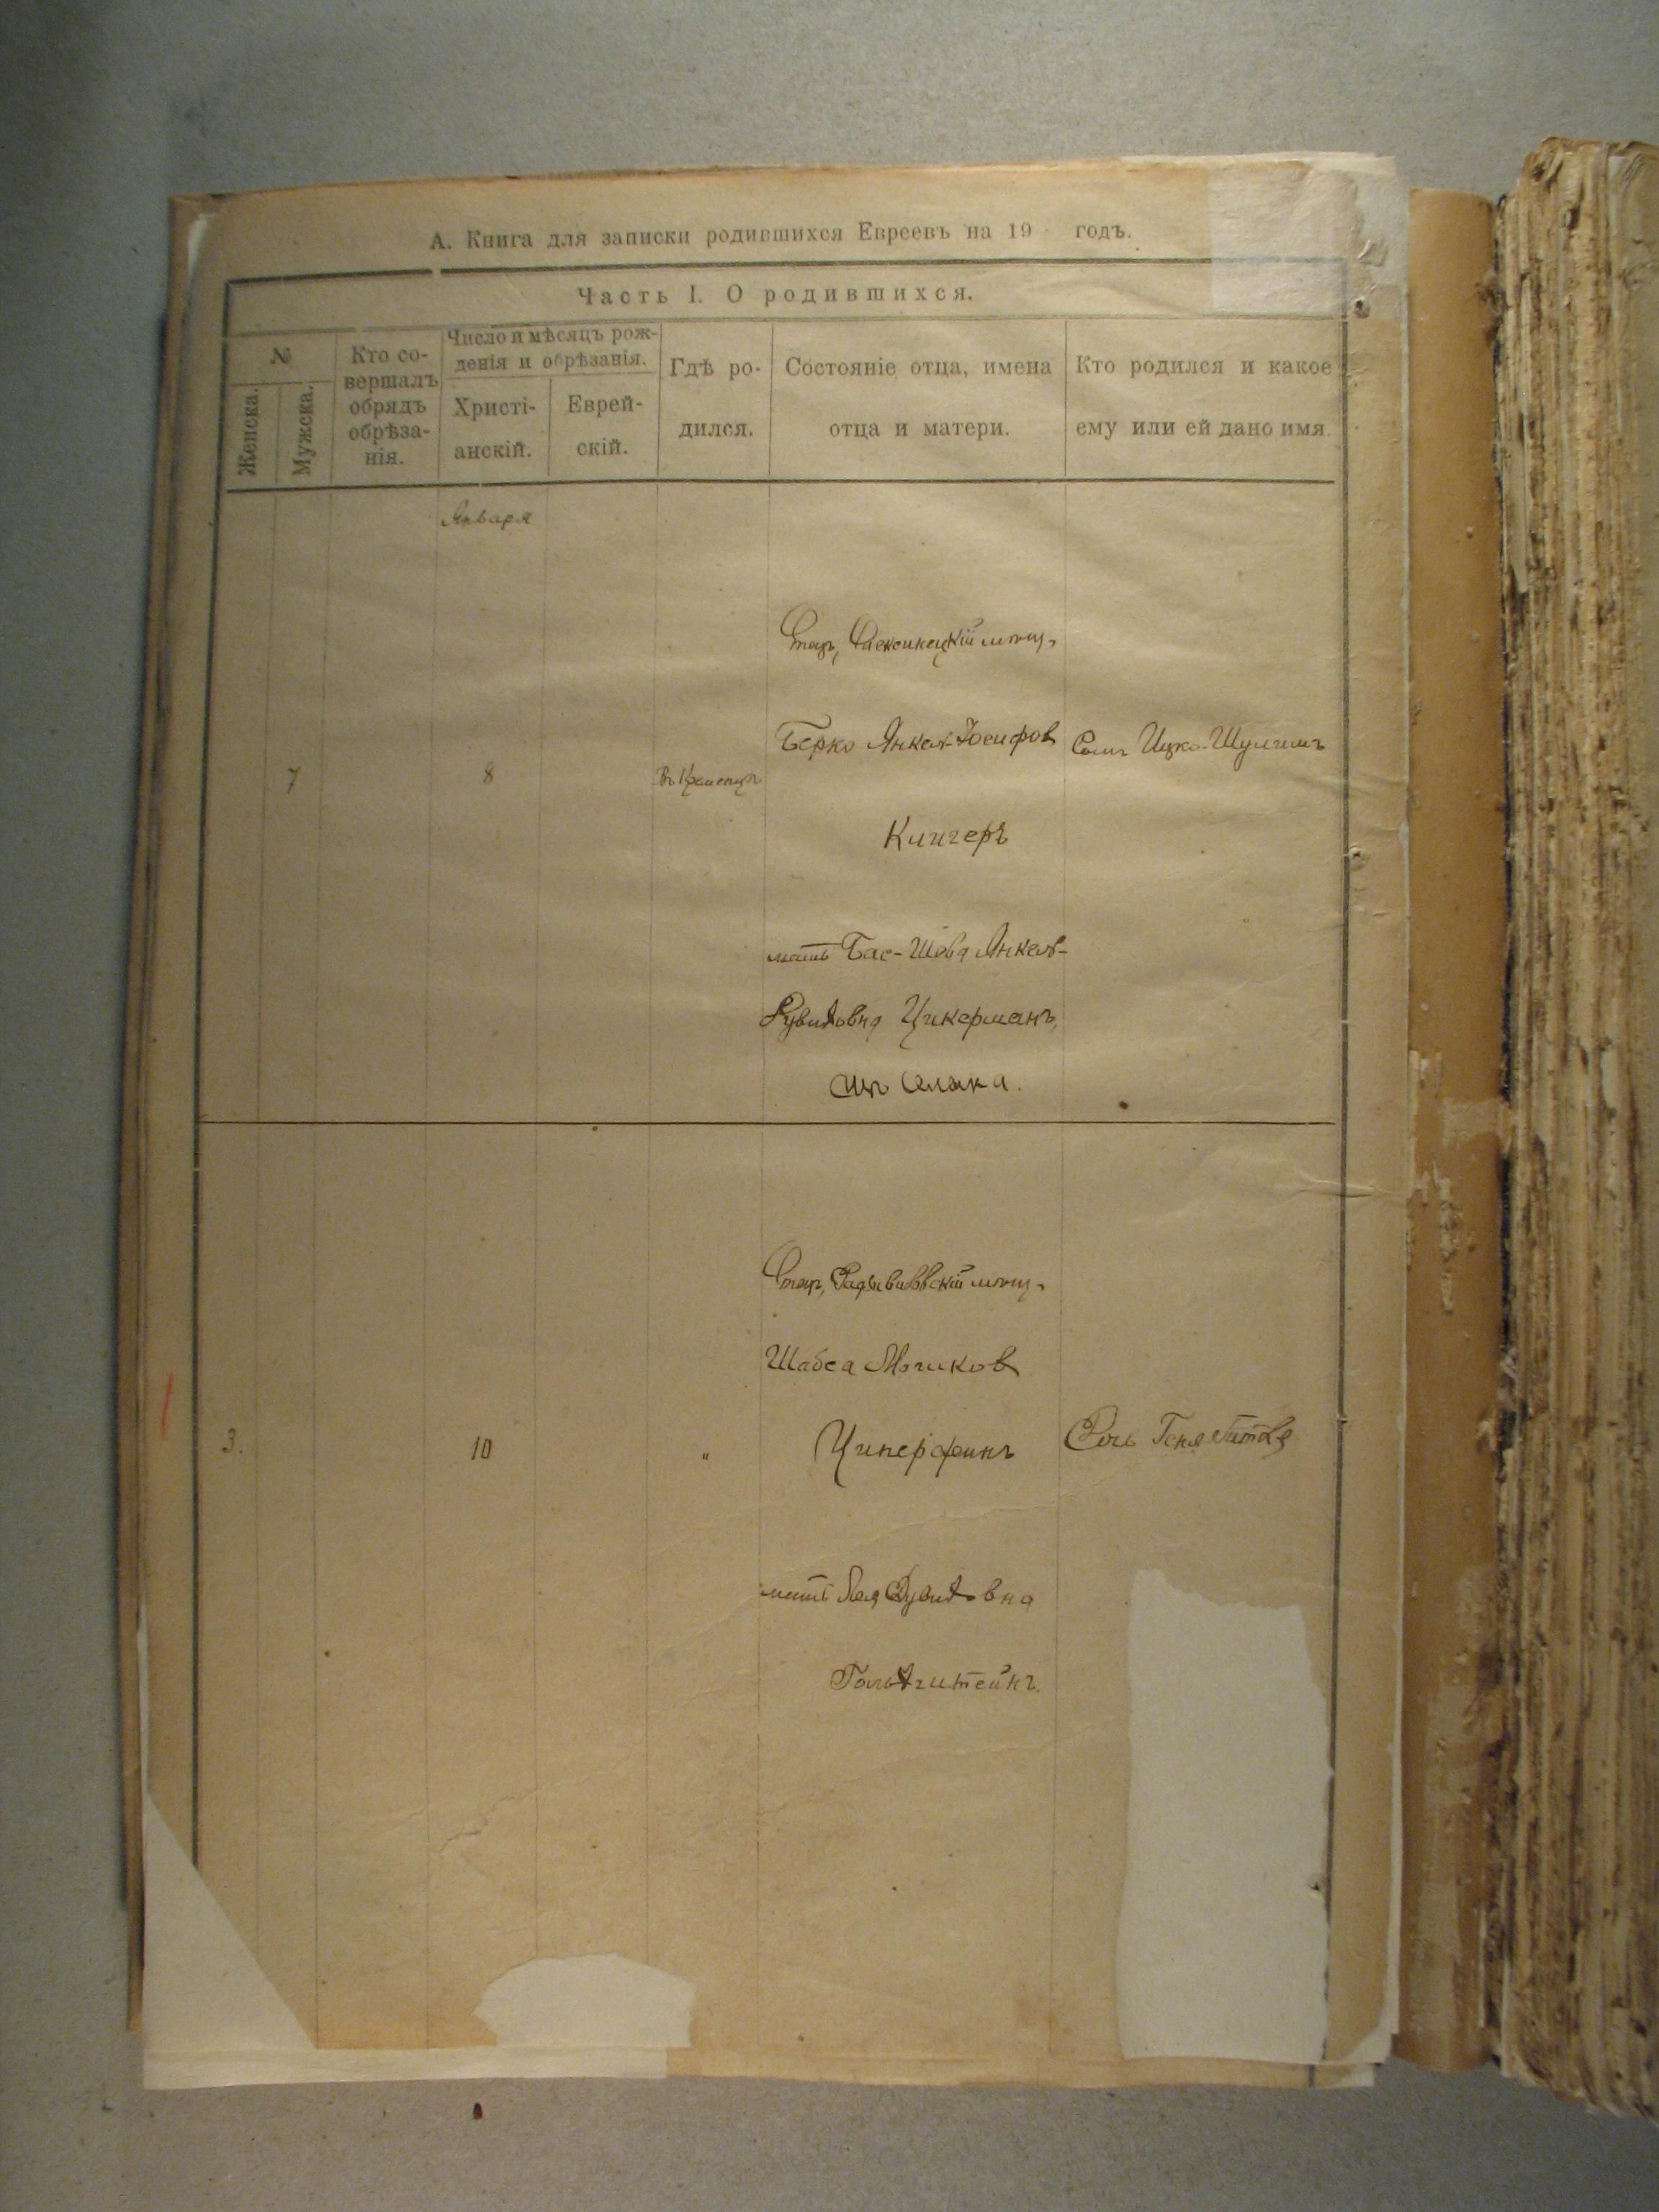 А. Книга для записки родившихся Евреевъ на 19 годъ.
Часть I. О родившихся.
№
Женска.
Мужска.
Кто со-
вершалъ
обрядъ
обрѣза-
нія.
Число и мѣсяцъ рож-
денія и обрѣзанія.
Христі-
анскій.
Еврей-
скій.
Гдѣ ро-
дился.
Состояніе отца, имена
отца и матери.
Кто родился и какое
ему или ей дано имя.
Января
7
8
въ Кременцѣ
мѣщ.
Берко Янкел-Іосифов
Кингеръ
мать Бас-Шева Янкел-
Рувиновна Цикерманъ,
Сынъ Ицко-Шулимъ
3.
10
"
Радзивиловскій мѣщ.
Шабса
Циперфинъ
мать Лея Дувидовна
Гольдштейнъ.
Дочь Геня